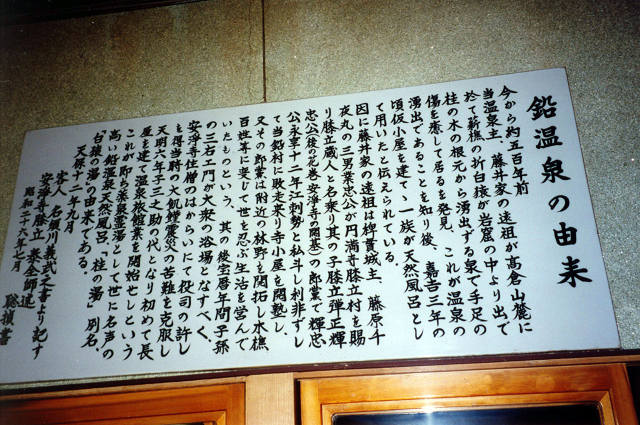 鉛温泉の由来
今から約五百年前
当温泉主、藤井家の遠祖が高倉山麓に
於て薪樵の折白猿が岩窟の中より出で
桂の木の根元から湧出する泉で手足の
傷を癒して居るを発見、これが温泉の
湧出であることを知り後、嘉吉三年の
頃仮小屋を建て、一族が天然風呂とし
て用いたと伝えられている。
因に藤井家の遠祖は稗貫城主、藤原斗
夜丸の三男業忠公が円満寺膝立村を賜
り膝立蔵人と名乗り其の子膝立弾正輝
忠公(後の花巻安浄寺の開基)の郎業で輝忠
公永享十二年士刺勢と私斗し利非ずし
て当鉛村に敗走来り寺小屋を開塾し、
又その郎業は附近の林野を開拓し木樵、
百姓等に変じて世を忍ぶ生活を営んで
いたものという、其の後宝暦年間子孫
の三右エ門が大衆の浴場となすべく、
安浄寺住僧のはからいにて役司の許し
を得当時の大飢饉震災の苦難を克服し
天明六年三之助の代となり初めて長
屋を建て温泉旅館業を開始せしという
これが即ち薬泉霊湯として世に名声の
高い鉛温泉天然風呂「桂の湯」別名、
「白猿の湯」の由来である。
天保十二年九月
客人 名須川義武文書より記す
安浄寺膝立 泰全師述
昭和二十六年七月
聡禎書